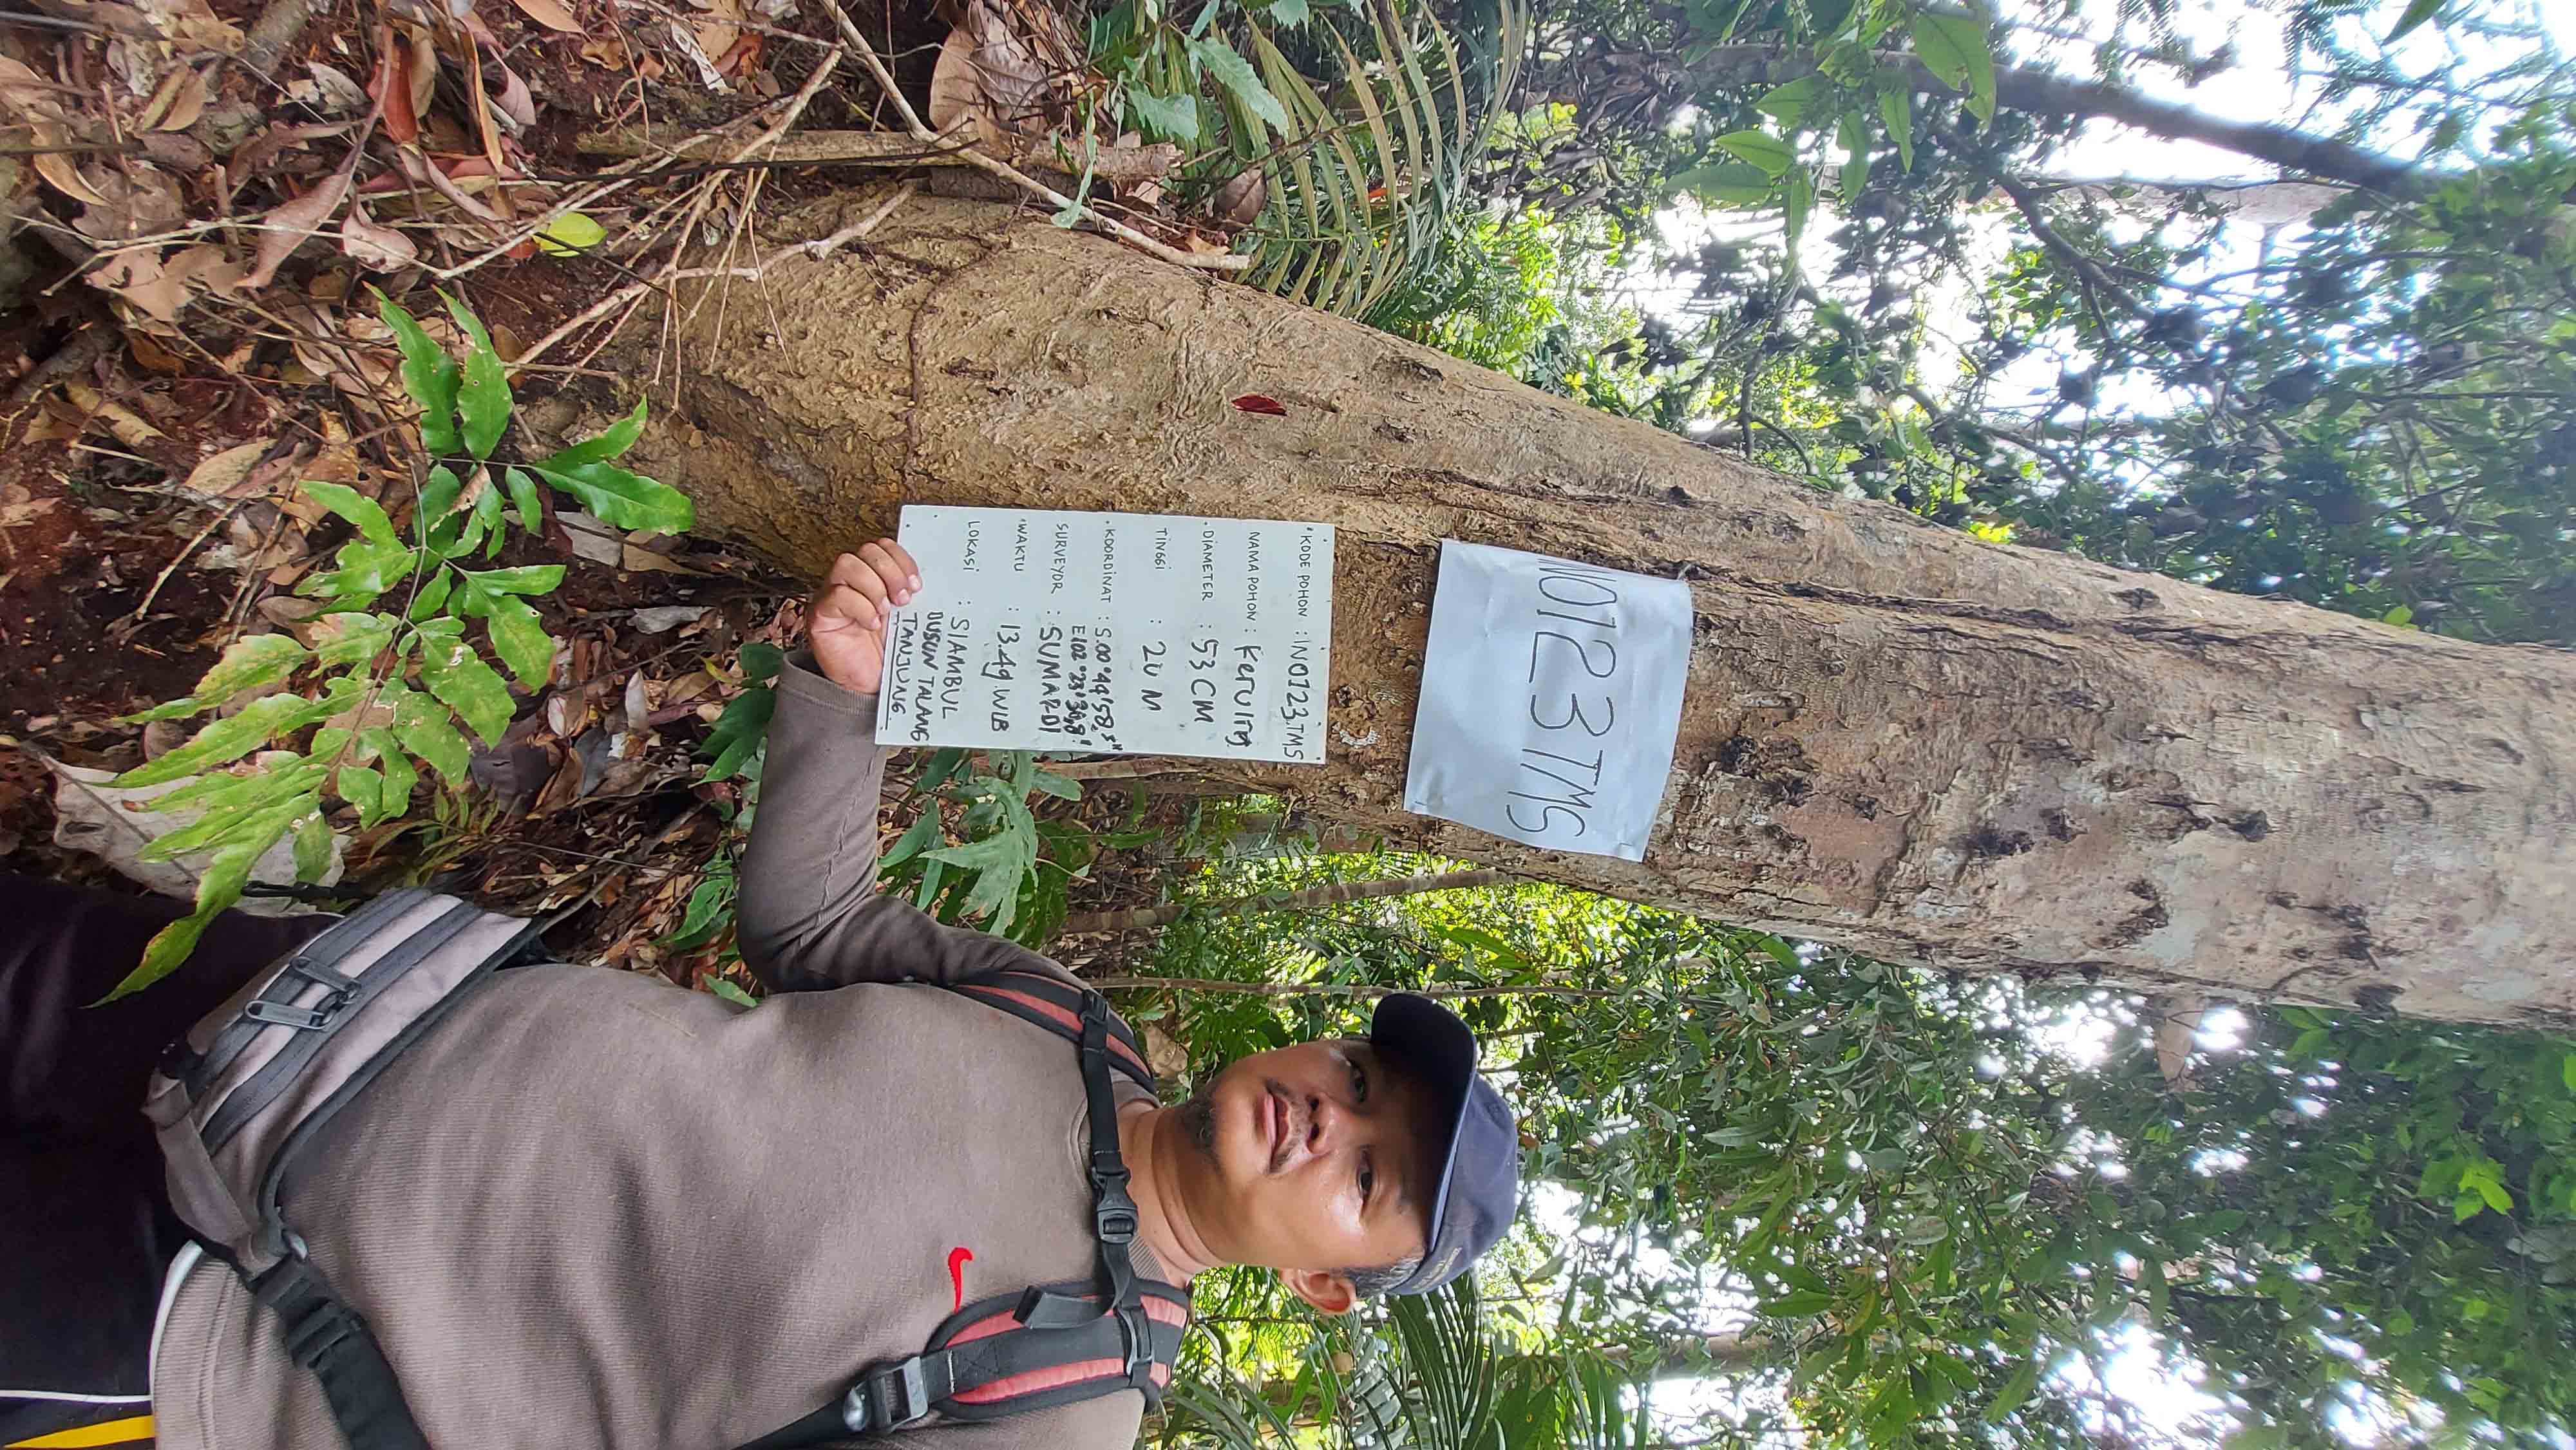 INO123TMS
KODE POHON : INO123.TMS
NAMA POHON : Keruing
DIAMETER : 53 CM
TINGGI : 20 M
KOORDINAT : S.00°44'58,3"
E102°23'36,8"
SURVEYOR : SUMARDI
WAKTU : 13.49 WIB
LOKASI : SIAMBUL
DUSUN TALANG
TANJUNG.